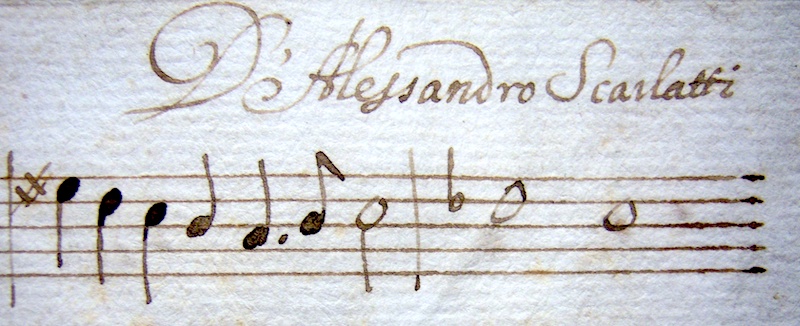 D' Alessandro Scarlatti